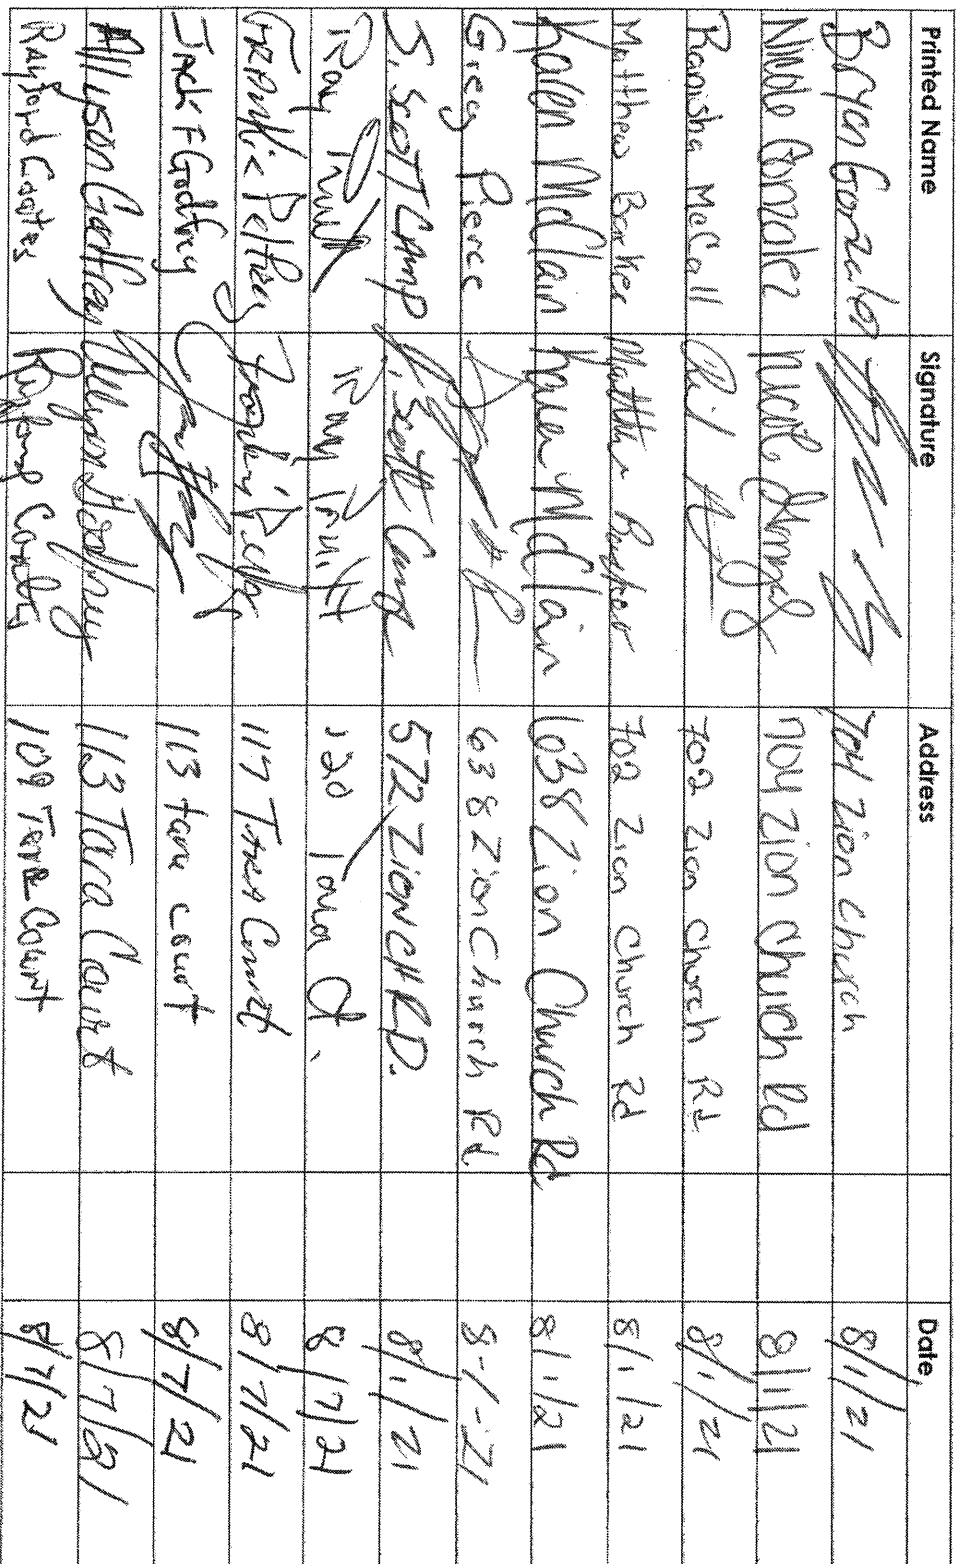 Printed Name Signature Address Date
Bryan Gonzalez 704 Zion Church 8/1/21
Nicole Gonzalez Nicole Gonzalez 704 Zion Church Rd 8/1/21
Ranisha McCall 702 Zion Church Rd 8/1/21
Matthew Barker Matthew Barker 702 Zion Church Rd 8/1/21
Karen McClain Karen McClain 638 Zion Church Rd 8/1/21
Greg Pierce 638 Zion Church Rd 8-1-21
S. SCOTT CAMP S. Scott Camp 572 ZION CH RD. 8/1/21
Ray Pruitt Ray Pruitt 120 Tara Ct. 8/7/21
FRANKIE 117 TARA Court 8/7/21
JACK F Godfrey 113 tara court 8/7/21
Allison Godfrey Allison Godfrey 113 Tara Court 8/7/21
Rayford Coates Rayford Coates 109 TARA Court 8/7/21